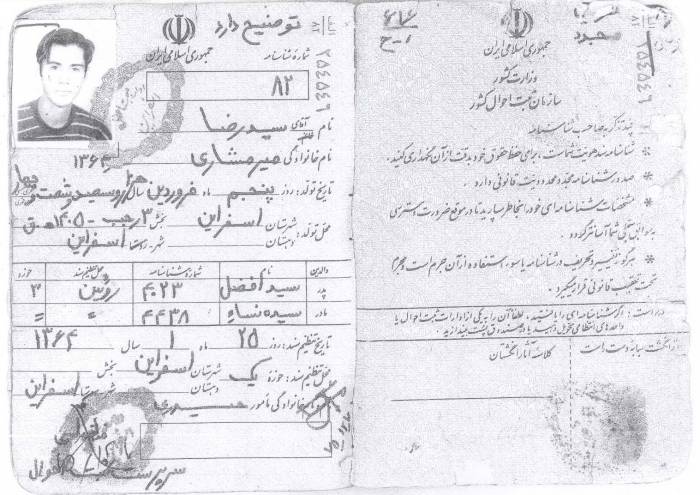 توضیح دارد
جمهوری اسلامی ایران
شمارهٔ شناسنامه
۸۲
نام آقای سیدرضا
نام خانوادگی میرمشاری ۱۳۶۴
تاریخ تولد: روز پنجم ماه فروردین سال هزار و سیصد و شصت و چهار
محل تولد: شهرستان اسفراین بخش ۳ رجب - ۱۴۰۵ ه‍.ق
دهستان شهر - روستا اسفراین
والدین نام شماره شناسنامه محل تنظیم سند حوزه
پدر سید افضل ۴۰۲۳ روئین ۳
مادر سیده نساء ۴۴۳۸ " "
تاریخ تنظیم سند: روز ۲۵ ماه ۱ سال ۱۳۶۴
محل تنظیم سند: حوزه یک شهرستان اسفراین بخش
دهستان شهر - روستا اسفراین
نام خانوادگی مأمور حیدری
سرپرست
۶۸۶
ج-۱
جمهوری اسلامی ایران
وزارت کشور
سازمان ثبت احوال کشور
چند تذکر به صاحب شناسنامه
* شناسنامه سند هویت شماست، برای حفظ حقوق خود بدقت از آن نگهداری کنید.
* صدور شناسنامه مجدد محدودیت قانونی دارد.
* مشخصات شناسنامه‌ای خود را بخاطر بسپارید تا در موقع ضرورت دسترسی
به سوابق سجلی شما آسانتر گردد.
* هرگونه تغییر و تحریف در شناسنامه یا سوء استفاده از آن جرم است و مجرم
تحت تعقیب قانونی قرار میگیرد.
اگر شناسنامه‌ای را یافتید، لطفاً آن را به یکی از ادارات ثبت احوال یا
واحدهای انتظامی تحویل دهید یا در صندوق پست بیندازید.
اثر انگشت سبابه دست راست
کلاسه آثار انگشتان